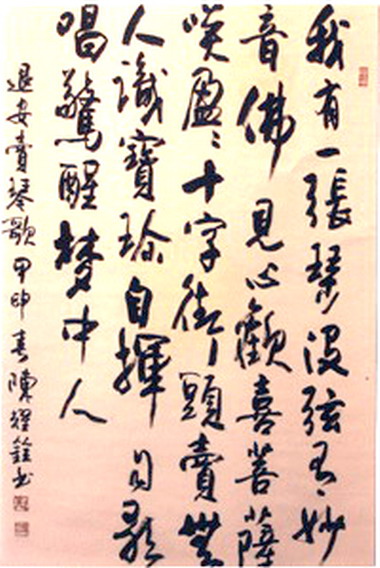 我有一張琴沒弦有妙
音佛見心歡喜菩薩
笑盈盈十字街頭賣無
人識寶珍自彈自歌
唱驚醒夢中人
退安賣琴歌甲申春陳耀銓書